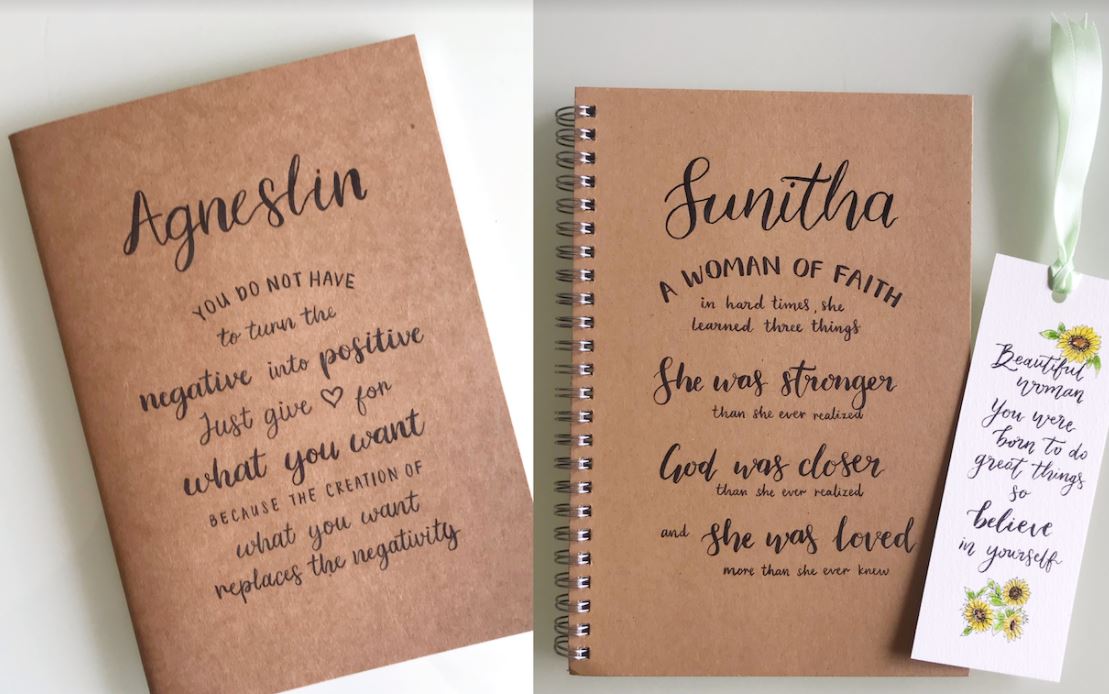 Agneslin
YOU DO NOT HAVE
to turn the
negative into positive
Just give ♡ for
what you want
BECAUSE THE CREATION OF
what you want
replaces the negativity
Sunitha
A WOMAN OF FAITH
in hard times, she
learned three things
She was stronger
than she ever realized
God was closer
than she ever realized
and she was loved
more than she ever knew
Beautiful
woman
You were
born to do
great things
so
believe
in yourself